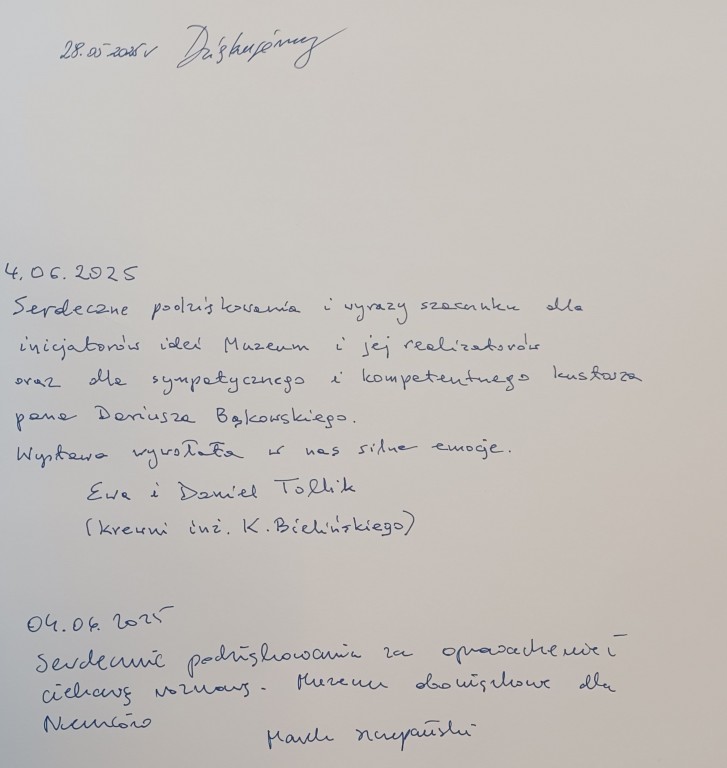 28.05.2025r Dziękujemy
4.06.2025
Serdeczne podziękowania i wyrazy szacunku dla
inicjatorów idei Muzeum i jej realizatorów
oraz dla sympatycznego i kompetentnego kustosza
pana Dariusza Bąkowskiego.
Wystawa wywołała w nas silne emocje.
Ewa i Daniel Tollik
(krewni inż. K. Bielińskiego)
04.06.2025
Serdecznie podziękowania za oprowadzenie i
ciekawą rozmowę. Muzeum obowiązkowe dla
Niemców
Marek Szczepański